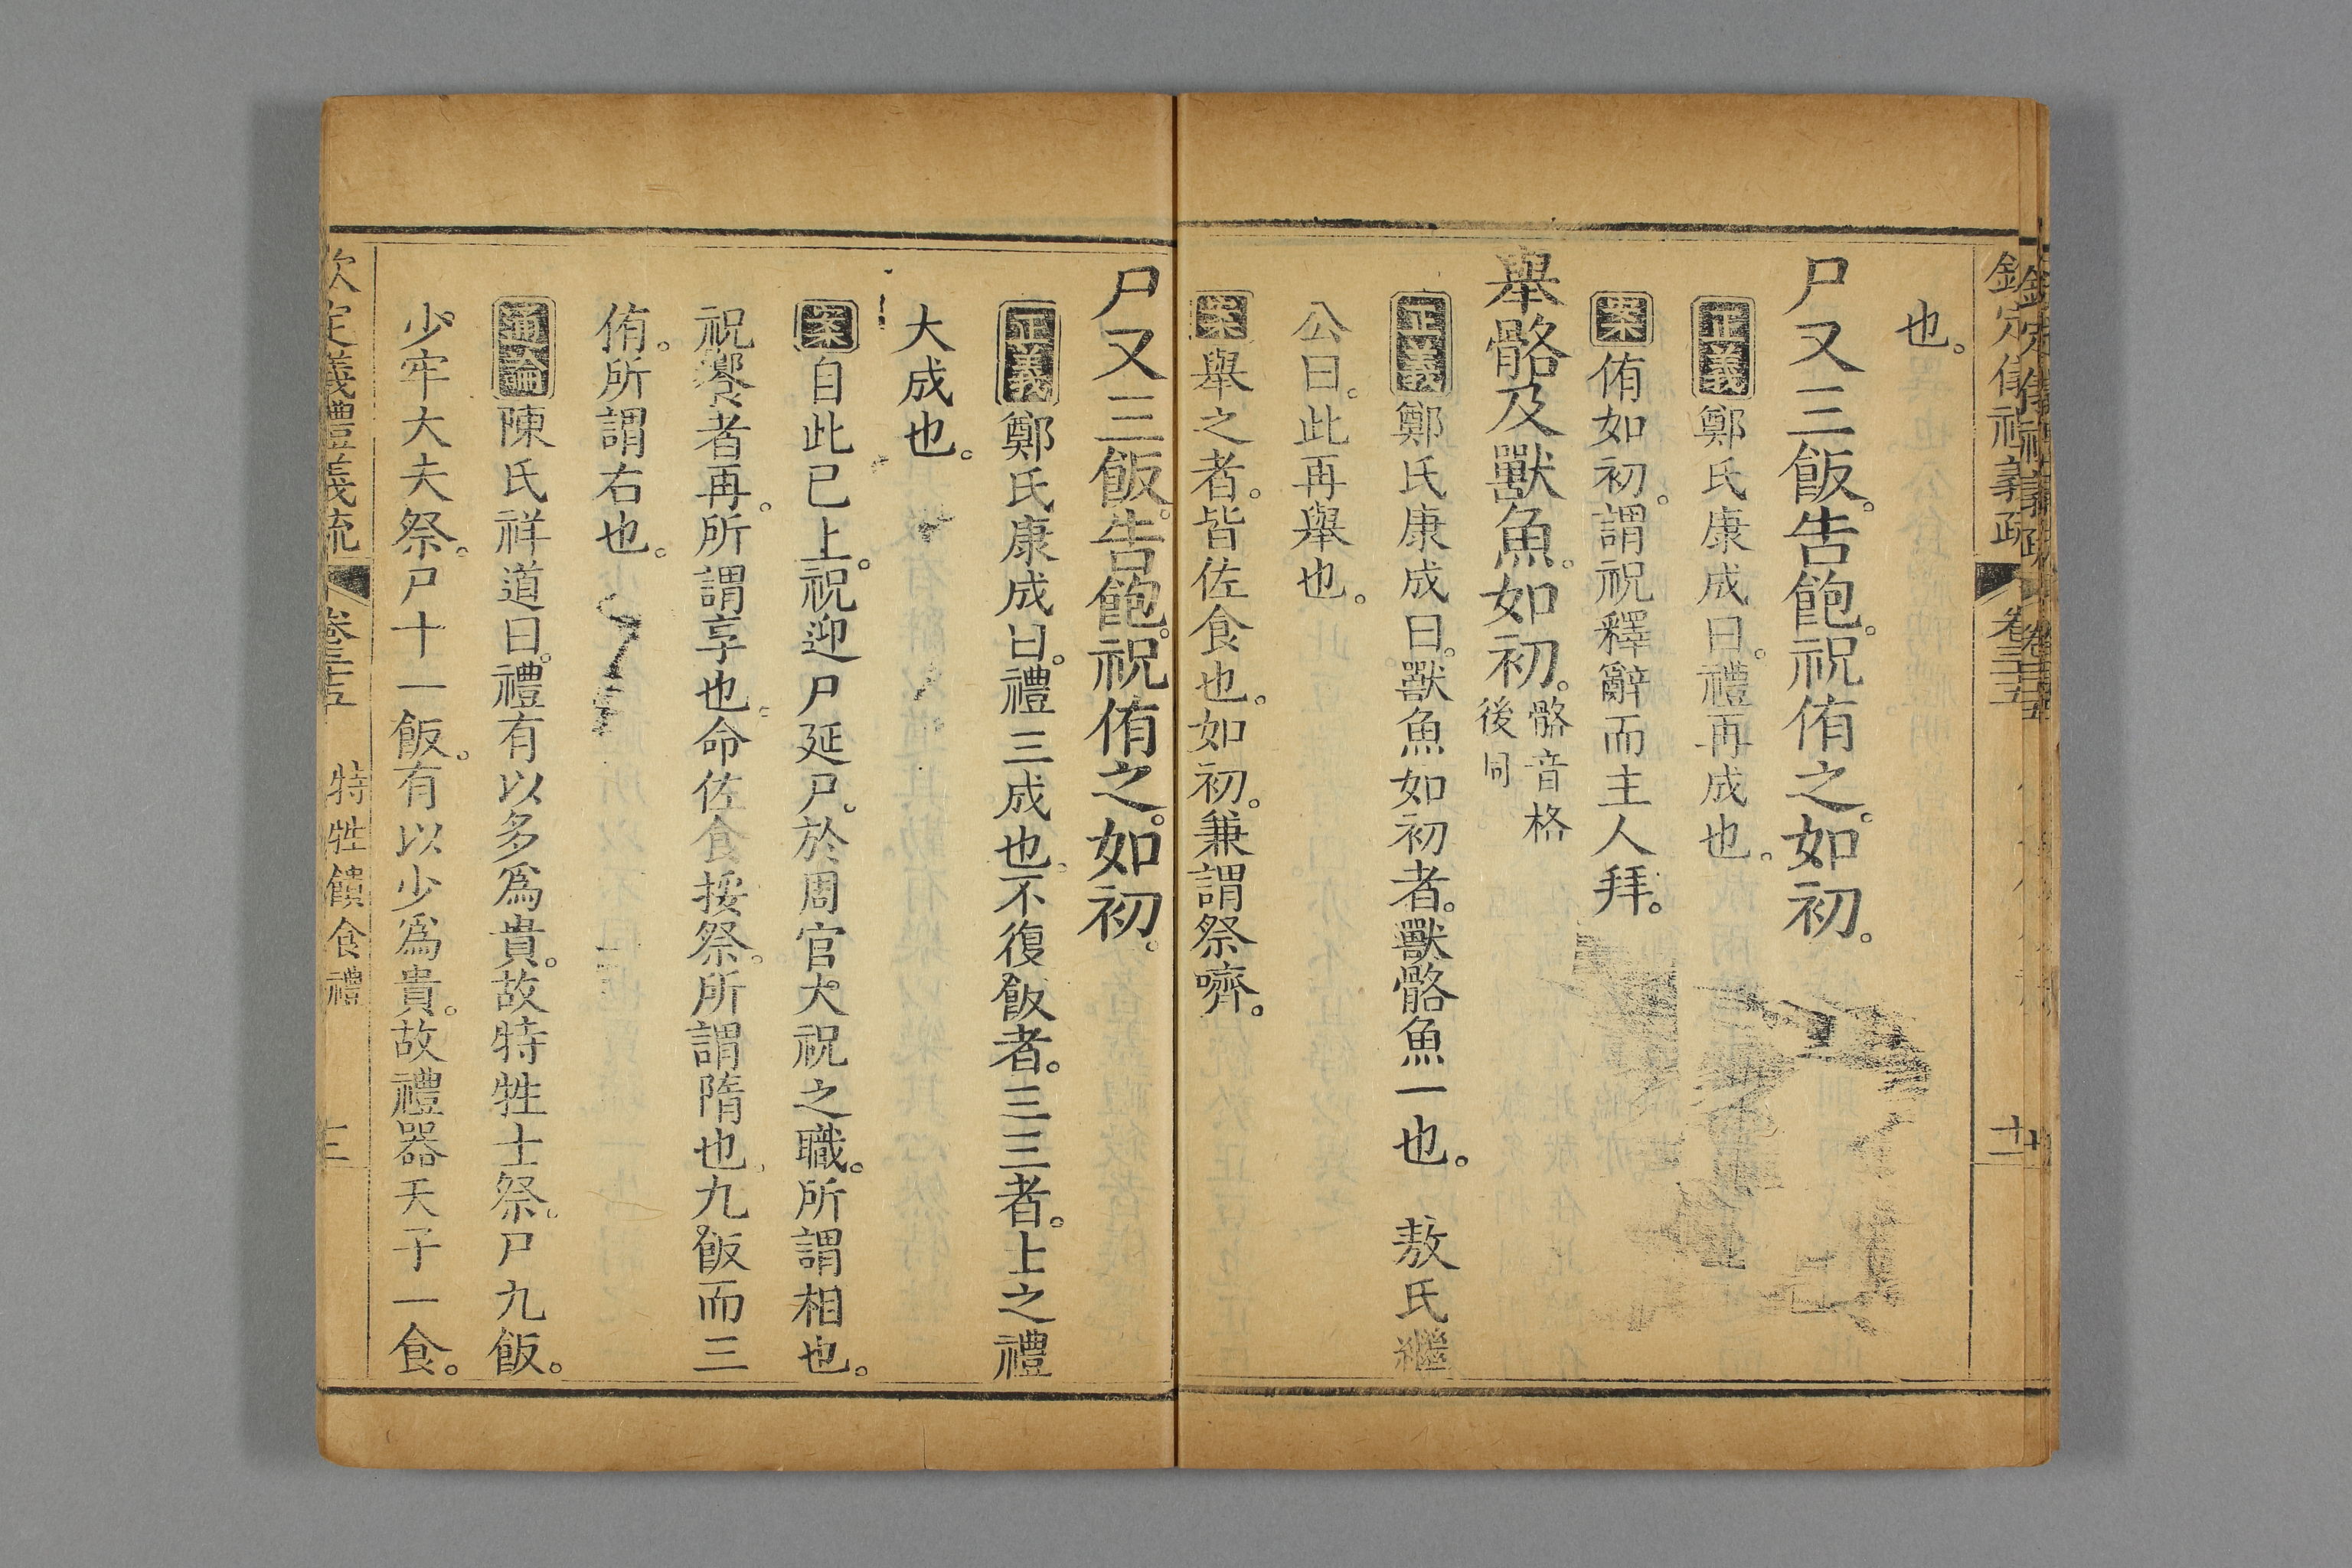 也。
尸又三飯。告飽。祝侑之。如初。
正義鄭氏康成曰。禮再成也。
案侑如初。謂祝釋辭而主人拜。
舉骼及獸魚。如初。骼音格
後同
正義鄭氏康成曰。獸魚如初者。獸骼魚一也。 敖氏繼
公曰。此再舉也。
案舉之者。皆佐食也。如初。兼謂祭嚌。
尸又三飯。告飽。祝侑之。如初。
正義鄭氏康成曰。禮三成也。不復飯者。三三者。上之禮
大成也。
案自此已上。祝迎尸延尸。於周官大祝之職。所謂相也。
祝饗者再。所謂享也。命佐食挼祭。所謂隋也。九飯而三
侑。所謂右也。
通論陳氏祥道曰。禮有以多爲貴。故特牲士祭。尸九飯。
少牢大夫祭。尸十一飯。有以少爲貴。故禮器天子一食。
欽定義禮義疏 卷三十五 特牲饋食禮